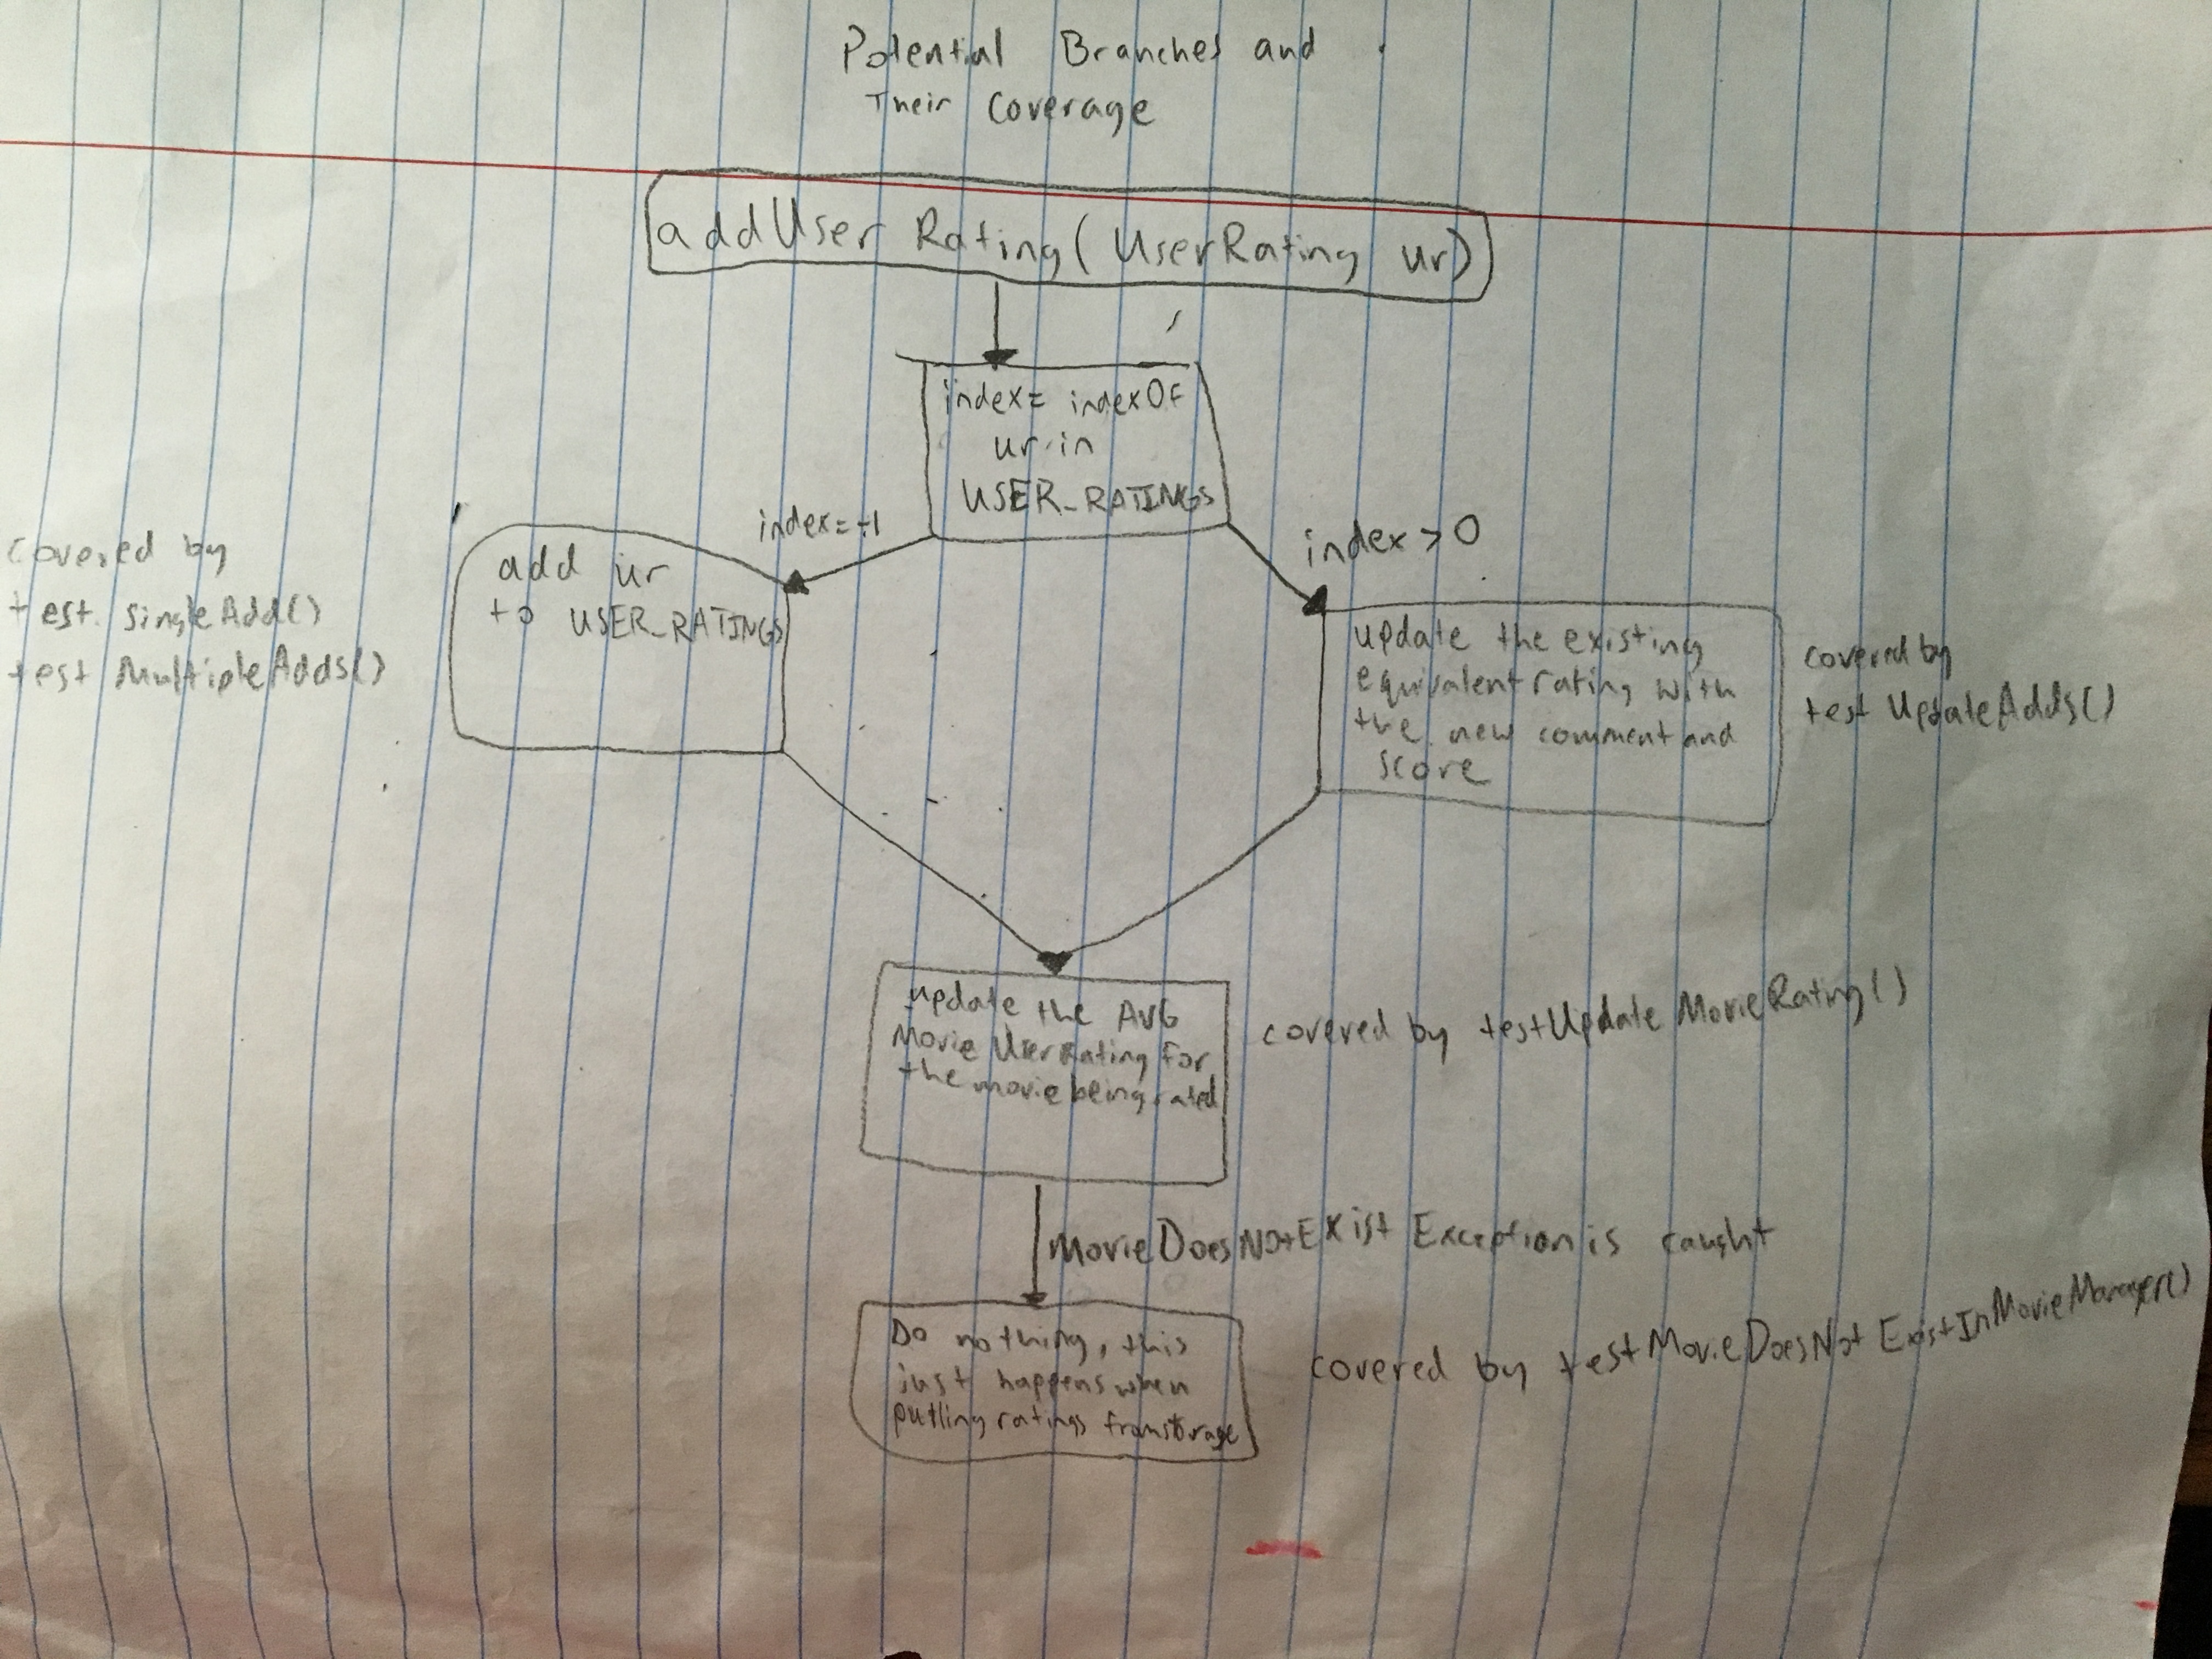 Potential Branches and
Their Coverage
addUserRating(UserRating ur)
index= indexOf
ur in
USER_RATINGS
index=-1
index>0
covered by
test singleAdd()
test MultipleAdds()
add ur
to USER_RATINGS
update the existing
equivalent rating with
the new comment and
score
covered by
test UpdateAdds()
update the AVG
Movie UserRating for
the movie being rated
covered by testUpdateMovieRating()
MovieDoesNotExist Exception is caught
Do nothing, this
just happens when
pulling ratings from storage
covered by testMovieDoesNotExistInMovieManager()